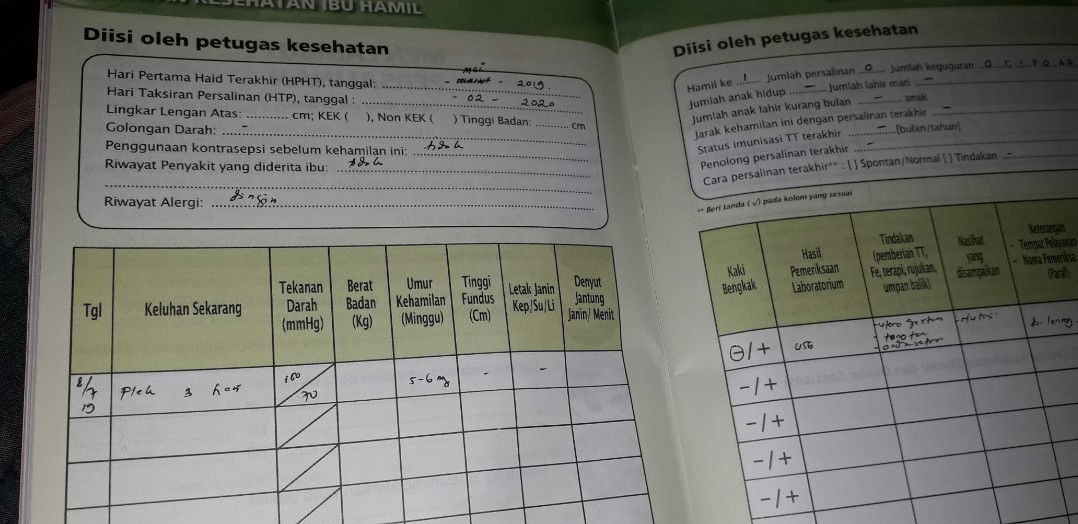 KESEHATAN IBU HAMIL
Diisi oleh petugas kesehatan
mei
Hari Pertama Haid Terakhir (HPHT), tanggal: - - 2019.
Hari Taksiran Persalinan (HTP), tanggal : - 02 - 2020
Lingkar Lengan Atas: ........ cm; KEK ( ), Non KEK ( ) Tinggi Badan: ........ cm
Golongan Darah: -
Penggunaan kontrasepsi sebelum kehamilan ini:
Riwayat Penyakit yang diderita ibu:
Riwayat Alergi:
Tgl
Keluhan Sekarang
Tekanan Darah (mmHg)
Berat Badan (Kg)
Umur Kehamilan (Minggu)
Tinggi Fundus (Cm)
Letak Janin Kep/Su/Li
Denyut Jantung Janin/ Menit
8/7 19
Flek 3 hari
100/70
5-6 mg
-
-
Diisi oleh petugas kesehatan
Hamil ke ..1.. Jumlah persalinan ..0.. Jumlah keguguran ..0.. G 1 P 0 A 0
Jumlah anak hidup — Jumlah lahir mati —
Jumlah anak lahir kurang bulan — anak
Jarak kehamilan ini dengan persalinan terakhir —
Status imunisasi TT terakhir — [bulan/tahun]
Penolong persalinan terakhir —
Cara persalinan terakhir** : [ ] Spontan/Normal [ ] Tindakan -
** Beri tanda (√) pada kolom yang sesuai
Kaki Bengkak
Hasil Pemeriksaan Laboratorium
Tindakan (pemberian TT, Fe, terapi, rujukan, umpan balik)
Nasihat yang disampaikan
Keterangan
- Tempat Pelayanan
- Nama Pemeriksa (Paraf)
-/+
USG
-/+
-/+
-/+
-/+